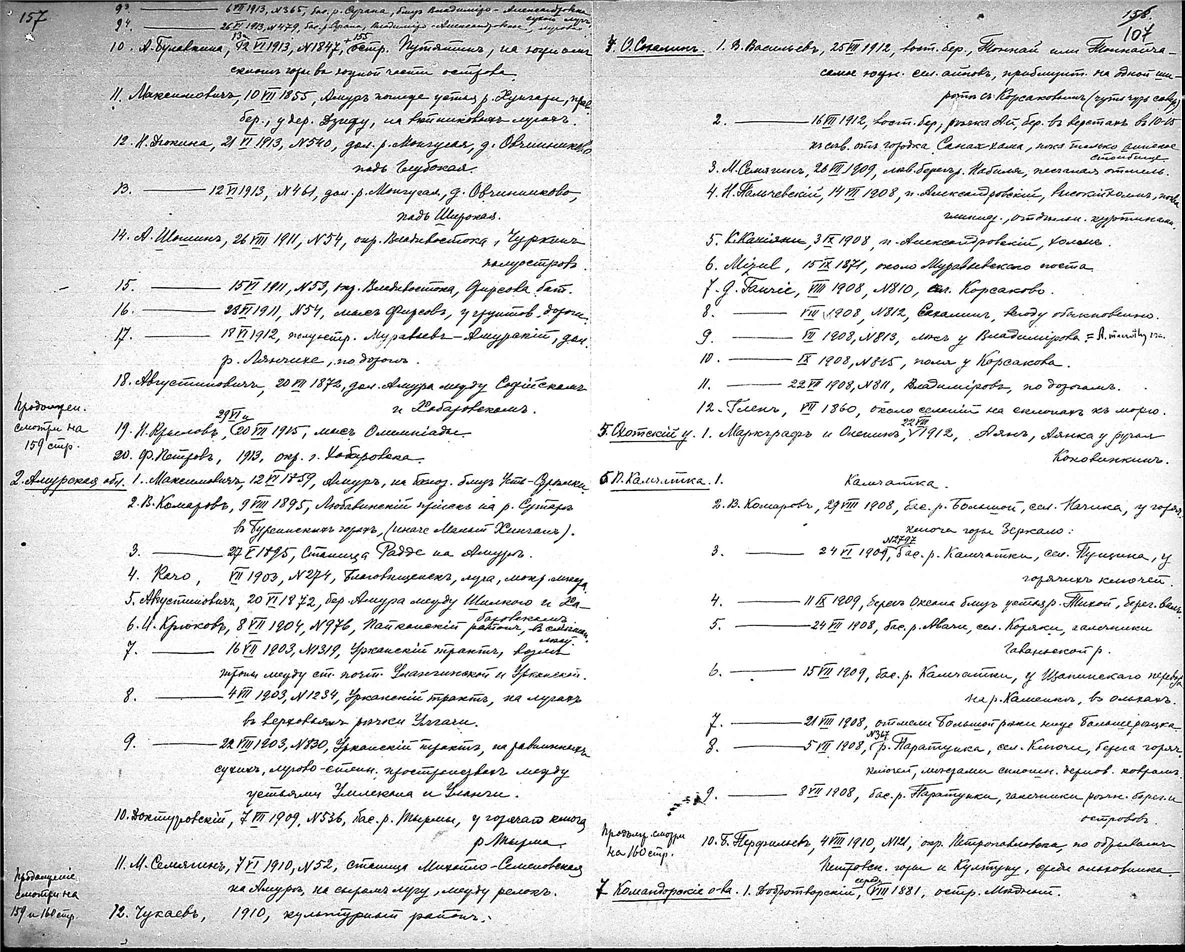 157
93 — 6 VII 1913, N365, бас. р. Сучана, близ Владимиро-Александровка
94 — 26 VI 1913, N479, бас. р. Сучана, Владимиро-Александровка,
10. А. Булавкина, 12 VI 1913, N1847, +155 остр. Путятин, на южном
склоне горы въ южной части острова.
11. Максимовичъ, 10 VII 1855, Амуръ пониже устья р. Хунгари, прав.
бер., у дер. Дзифу, на вейниковыхъ лугахъ.
12. Н. Дюкина, 21 VI 1913, N540, дол. р. Монгугая, д. Овчинниково
падь Глубокая.
13. — 12 VI 1913, N461, дол. р. Монгугая, д. Овчинниково,
падь Широкая.
14. А. Шошинъ, 26 VIII 1911, N54, окр. Владивостока, Чуркинъ
полуостровъ.
15. — 15 VI 1911, N53, окр. Владивостока, Фирсова бат.
16. — 28 VI 1911, N54, мысъ Фирсовъ, у грунтов. дороги.
17. — 18 VI 1912, полуостр. Муравьевъ-Амурскій, дол.
р. Лянчихе, по дорогѣ.
18. Августиновичъ, 20 VII 1872, дол. Амура между Софійскомъ
и Хабаровскомъ.
Продолжен.
смотри на
159 стр.
29 VI и
19. И. Крыловъ, 20 VII 1915, мысъ Олимпіады.
20. Ф. Петровъ, 1913, окр. г. Хабаровска.
2. Амурская обл. 1. Максимовичъ, 12 VI 1859, Амуръ, близ Усть-
2. В. Комаровъ, 9 VIII 1895, Любавинскій пріискъ на р. Сутаръ
въ Буреинскихъ горахъ, (иначе Малый Хинганъ).
3. — 27 1895, Станица Радде на Амурѣ.
4. Кочо, VII 1903, N274, Благовѣщенскъ, луга, мокр. мѣста
5. Августиновичъ, 20 VI 1872, бер. Амура между Шилкою и Ха-
баровскомъ.
6. И. Крюковъ, 8 VII 1904, N976, районъ,
7. — 16 VII 1903, N1319, Урканскій трактъ, возлѣ
тропы между ст. почт. и Урканской.
8 — 4 VII 1903, N1234, Урканскій трактъ, на лугахъ
въ верховьяхъ рѣчки
9. — 22 VIII 1903, N830, Урканскій трактъ, на равнинныхъ
сухихъ, лугово-степн. пространствахъ между
устьями Умлекана и Уганги.
10. Доктуровскій, 7 VII 1909, N536, бас. р. Тырмы, у горячаго ключа
р. Тырма.
11. М. Семягинъ, 7 VI 1910, N52, станица Михайло-Семеновская
на Амурѣ, на сыромъ лугу, между релокъ.
Продолженіе
смотри на
159 и 160 стр.
12. Чукаевъ, 1910, культурный районъ.
158.
107
4. О. Сахалинъ. 1. В. Васильевъ, 25 VIII 1912, вост. бер.,
самое южн. сел. айновъ, приблизит. на одной ши-
ротѣ съ Корсаковымъ (чуть-чуть сѣвер.)
2. — 16 VIII 1912, вост. бер., рѣчка Ай, бер. въ верстахъ въ 10-15
къ сѣв. отъ городка Сакае-хама,
3. М. Семягинъ, 26 VIII 1909, лѣв. берегъ р. Набиля, песчаная отмель.
4. Н. Пальчевскій, 14 VIII 1908, п. Александровскій,
глинист., отдѣльн. куртинами.
5. К. 3 IX 1908, п. Александровскій, холмъ.
6. Mizul, 15 IX 1871, около Муравьевскаго поста
7. Фори, VIII 1908, N810, сел. Корсаково.
8. — VIII 1908, N812, Сахалинъ, всюду обыкновенно.
9 — VII 1908, N813, мысъ у Владимірова
10. — IX 1908, N815, поля у Корсакова.
11. — 22 VIII 1908, N811, Владиміровъ, по дорогамъ.
12. Гленъ, VII 1860, около селеній на склонахъ къ морю.
5. Охотскій у. 1. Маркграфъ и Оленинъ, 22 VII 1912, Аянъ, Аянка у ручья
Коковинкинъ.
6 П. Камчатка. 1. Камчатка.
2. В. Комаровъ, 29 VIII 1908, бас. р. Большой, сел. Начика, у горяч.
ключа горы Зеркало:
N2797
3. — 24 VI 1909, бас. р. Камчатки, сел. Пущина, у
горячихъ ключей.
4. — 11 IX 1909, берегъ Океана близъ устья р. Тихой, берег. валъ
5. — 24 VIII 1908, бас. р. Авачи, сел. Коряки, галечники
Гаваньской р.
6. — 15 VIII 1909, бас. р. Камчатки, у Щапинскаго перевоза
на р. Каменкѣ, въ ольхахъ.
7. — 21 VIII 1908, отмели Большой рѣки ниже Большерѣцка
N347
8. — 5 VII 1908, р. Паратунка, сел. Ключи, берега горяч.
ключей, мѣстами сплошн. дернов. ковромъ.
9. — 8 VII 1908, бас. р. Паратунки, галечники рѣчн. берег. и
острововъ.
Продолж. смотри
на 160 стр.
10. Б. Перфильевъ, 4 VIII 1910, N121, окр. Петропавловска, по обрывамъ
Петровск. горы и Култуку, среди ольховника.
7 Командорскіе о-ва. 1. Добротворскій, серед. VIII 1881, остр. Мѣдный.